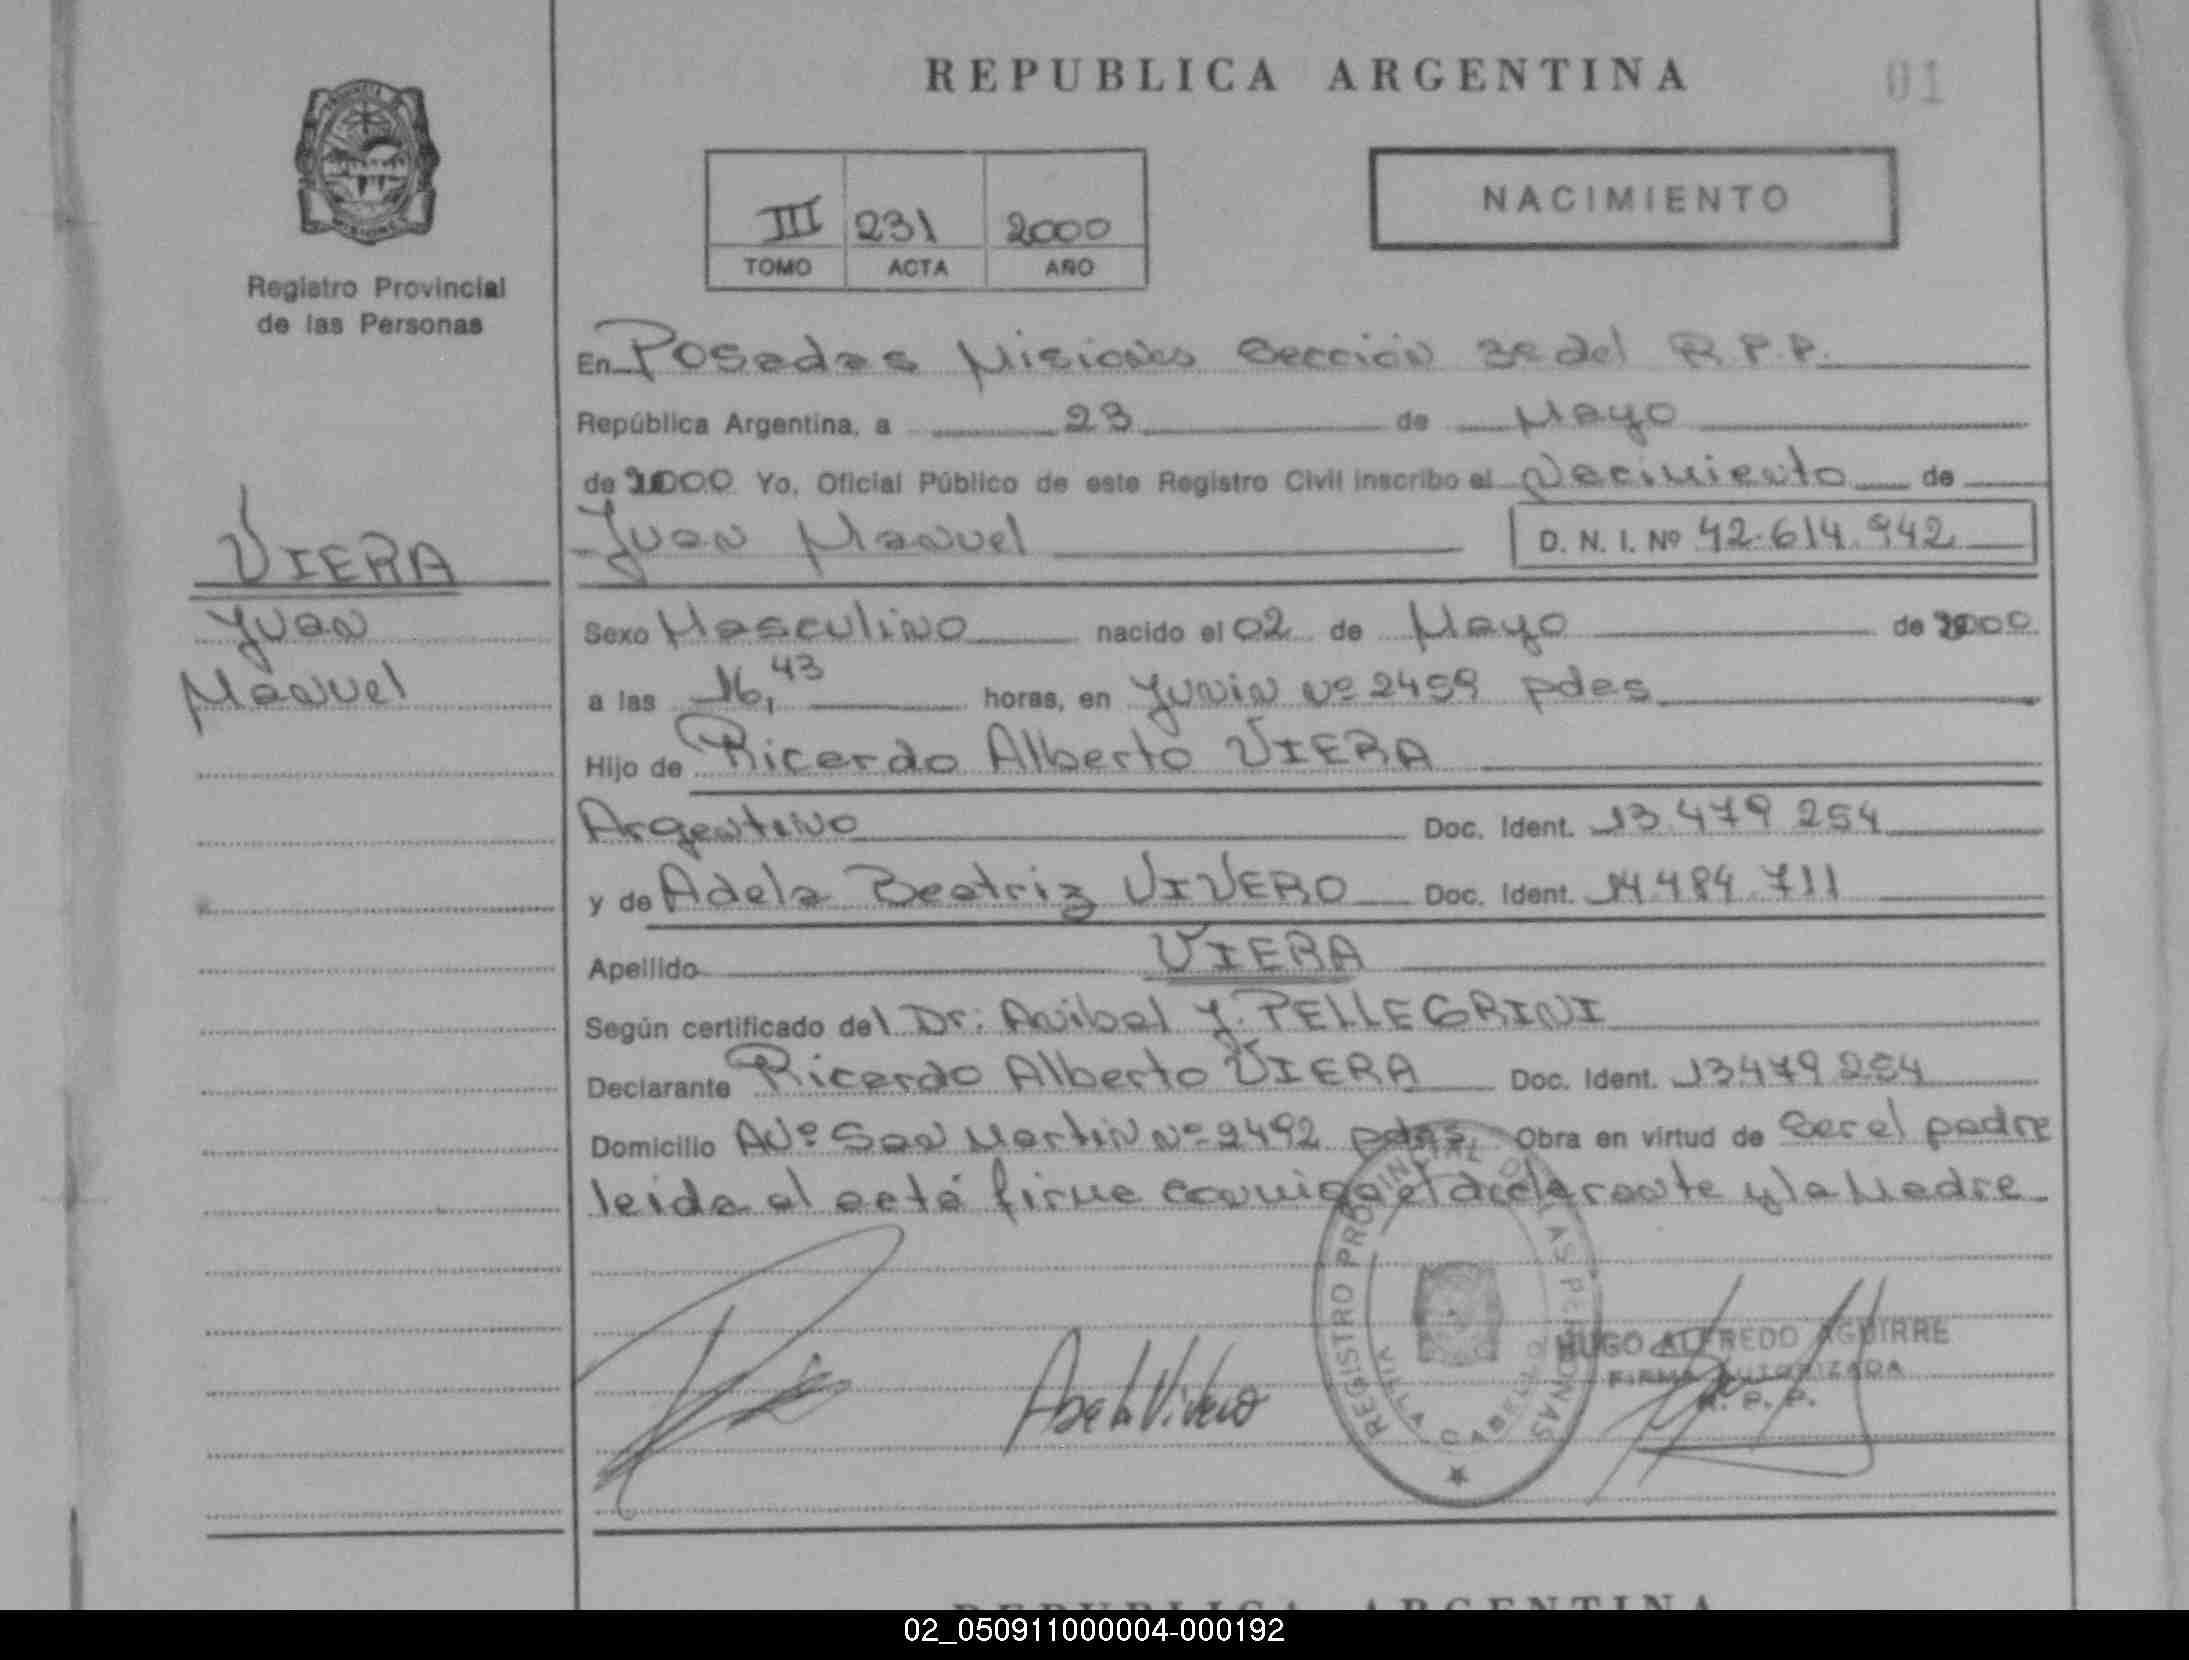 REPUBLICA ARGENTINA
01
Registro Provincial
de las Personas
III 231 2000
TOMO ACTA AÑO
NACIMIENTO
En Posadas Misiones Sección 3º del R.P.P.
República Argentina, a 23 de Mayo
de 2000 Yo, Oficial Público de este Registro Civil inscribo el Nacimiento de
Juan Manuel D. N. I. Nº 42.614.942
VIERA
Juan
Manuel
Sexo Masculino nacido el 02 de Mayo de 2000
a las 16,43 horas, en Junin Nº 2459 pdas
Hijo de Ricardo Alberto VIERA
Argentino Doc. Ident. 13.479.254
y de Adela Beatriz VIVERO Doc. Ident. 14.484.711
Apellido VIERA
Según certificado del Dr: Anibal J. PELLEGRINI
Declarante Ricardo Alberto VIERA Doc. Ident. 13479254
Domicilio Avº San Martin Nº 2492 pdas Obra en virtud de ser el padre
leida el actá firme conmigo el declarante y la Madre
Adela Vivero
REGISTRO PROVINCIAL DE LAS PERSONAS
VILLA CABELLO
HUGO ALFREDO AGUIRRE
FIRMA AUTORIZADA
R. P. P.
REPUBLICA ARGENTINA
02_050911000004-000192